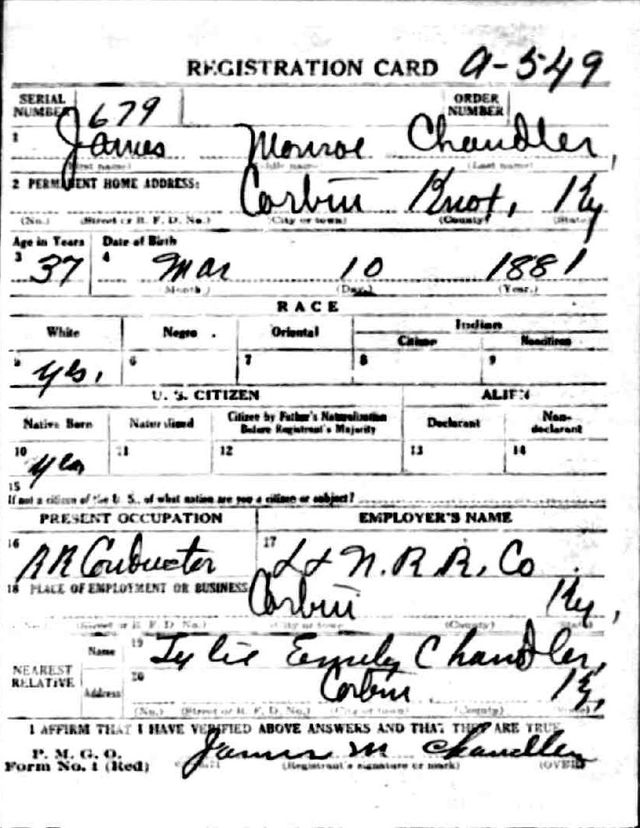 REGISTRATION CARD A-549
SERIAL NUMBER 679 ORDER NUMBER
1 James Monroe Chandler,
(First name) (Middle name) (Last name)
2 PERMANENT HOME ADDRESS: Corbin Knox, Ky
(No.) (Street or R. F. D. No.) (City or town) (County) (State)
Age in Years Date of Birth
3 37 4 Mar 10 1881
(Month.) (Day.) (Year.)
RACE
White Negro Oriental Indian
Citizen Noncitizen
5 yes. 6 7 8 9
U. S. CITIZEN ALIEN
Native Born Naturalized Citizen by Father's Naturalization Before Registrant's Majority Declarant Non-declarant
10 yes 11 12 13 14
15
If not a citizen of the U. S., of what nation are you a citizen or subject?
PRESENT OCCUPATION EMPLOYER'S NAME
16 RR Conductor 17 L & N. R. R. Co.
18 PLACE OF EMPLOYMENT OR BUSINESS Corbin Ky,
(No.) (Street or R. F. D. No.) (City or town) (County) (State)
NEAREST RELATIVE
Name 19 Emily Chandler,
Address 20 Corbin Ky,
(No.) (Street or R. F. D. No.) (City or town) (County) (State)
I AFFIRM THAT I HAVE VERIFIED ABOVE ANSWERS AND THAT THEY ARE TRUE
P. M. G. O.
Form No. 1 (Red) James M Chandler
(Registrant's signature or mark) (OVER)